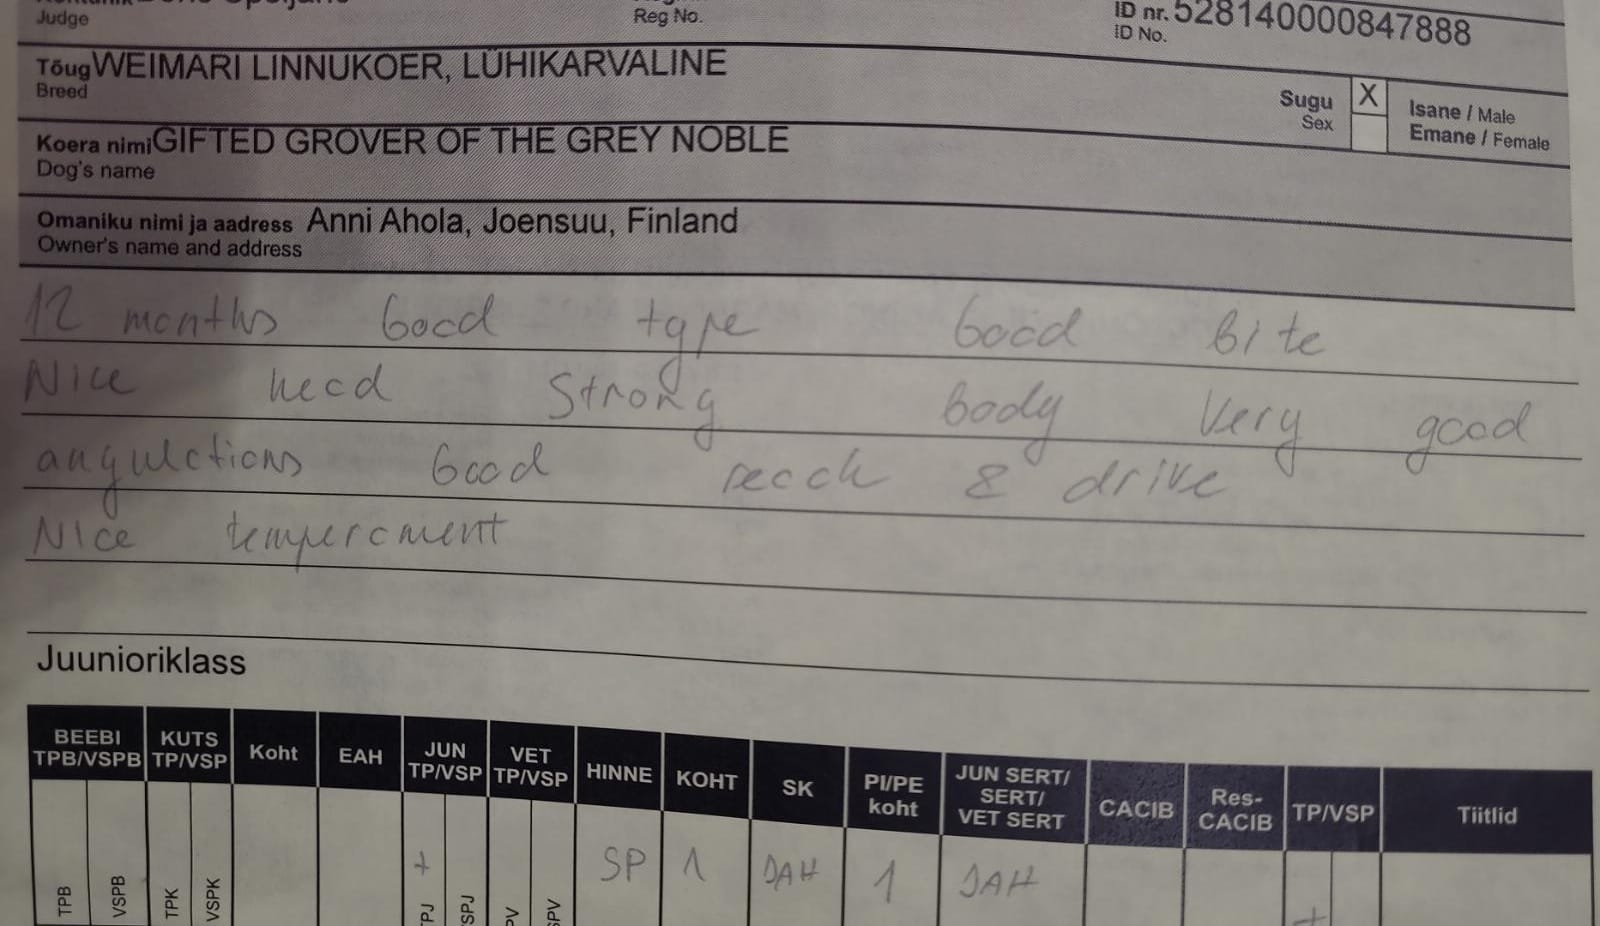 Judge
Reg No.
ID nr. 528140000847888
ID No.
Tõug WEIMARI LINNUKOER, LÜHIKARVALINE
Breed
Sugu X Isane / Male
Sex Emane / Female
Koera nimi GIFTED GROVER OF THE GREY NOBLE
Dog's name
Omaniku nimi ja aadress Anni Ahola, Joensuu, Finland
Owner's name and address
12 months Good type Good bite
Nice head Strong body Very good
angulations Good reach & drive
Nice temperament
Juunioriklass
BEEBI TPB/VSPB KUTS TP/VSP Koht EAH JUN TP/VSP VET TP/VSP HINNE KOHT SK PI/PE koht JUN SERT/ SERT/ VET SERT CACIB Res-CACIB TP/VSP Tiitlid
+ SP 1 JAH 1 JAH +
TPB VSPB TPK VSPK